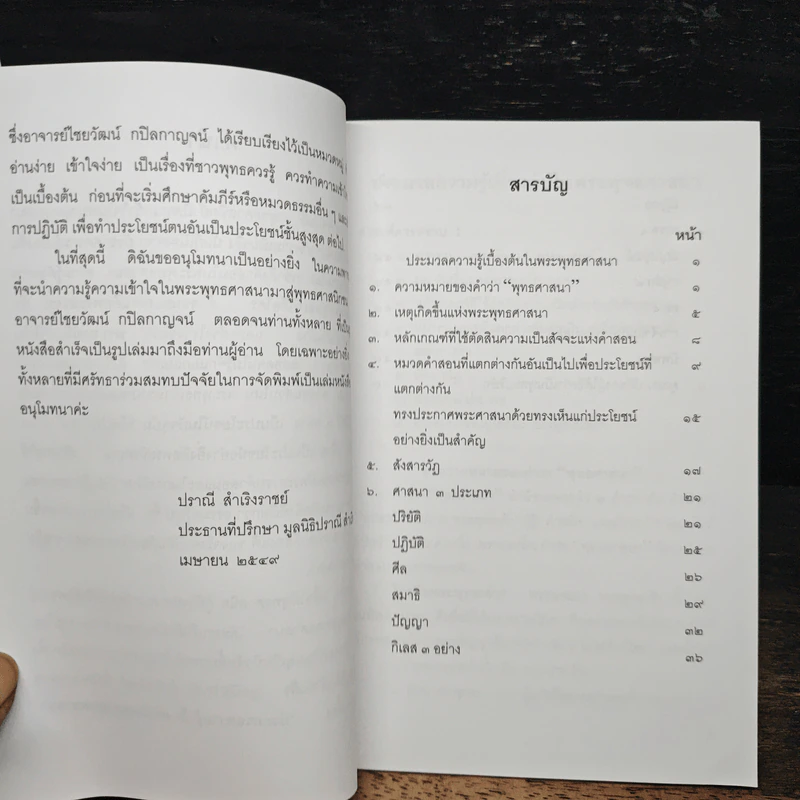 ซึ่งอาจารย์ไชยวัฒน์ กปิลกาญจน์ ได้เรียบเรียงไว้เป็นหมวดหมู่
อ่านง่าย เข้าใจง่าย เป็นเรื่องที่ชาวพุทธควรรู้ ควรทำความเข้าใจ
เป็นเบื้องต้น ก่อนที่จะเริ่มศึกษาคัมภีร์หรือหมวดธรรมอื่น ๆ
การปฏิบัติ เพื่อทำประโยชน์ตนอันเป็นประโยชน์ชั้นสูงสุด ต่อไป
ในที่สุดนี้ ดิฉันขออนุโมทนาเป็นอย่างยิ่ง
ที่จะนำความรู้ความเข้าใจในพระพุทธศาสนามาสู่พุทธศาสนิกชน
อาจารย์ไชยวัฒน์ กปิลกาญจน์ ตลอดจนท่านทั้งหลาย
หนังสือสำเร็จเป็นรูปเล่มมาถึงมือท่านผู้อ่าน โดยเฉพาะอย่างยิ่ง
ทั้งหลายที่มีศรัทธาร่วมสมทบปัจจัยในการจัดพิมพ์เป็นเล่มหนังสือ
อนุโมทนาค่ะ
ปราณี สำเริงราชย์
ประธานที่ปรึกษา มูลนิธิปราณี
เมษายน ๒๕๔๙
สารบัญ
หน้า
ประมวลความรู้เบื้องต้นในพระพุทธศาสนา ๑
๑. ความหมายของคำว่า “พุทธศาสนา” ๑
๒. เหตุเกิดขึ้นแห่งพระพุทธศาสนา ๕
๓. หลักเกณฑ์ที่ใช้ตัดสินความเป็นสัจจะแห่งคำสอน ๘
๔. หมวดคำสอนที่แตกต่างกันอันเป็นไปเพื่อประโยชน์ที่ ๙
แตกต่างกัน
ทรงประกาศพระศาสนาด้วยทรงเห็นแก่ประโยชน์ ๑๕
อย่างยิ่งเป็นสำคัญ
๕. สังสารวัฏ ๑๗
๖. ศาสนา ๓ ประเภท ๒๑
ปริยัติ ๒๑
ปฏิบัติ ๒๕
ศีล ๒๖
สมาธิ ๒๙
ปัญญา ๓๒
กิเลส ๓ อย่าง ๓๖